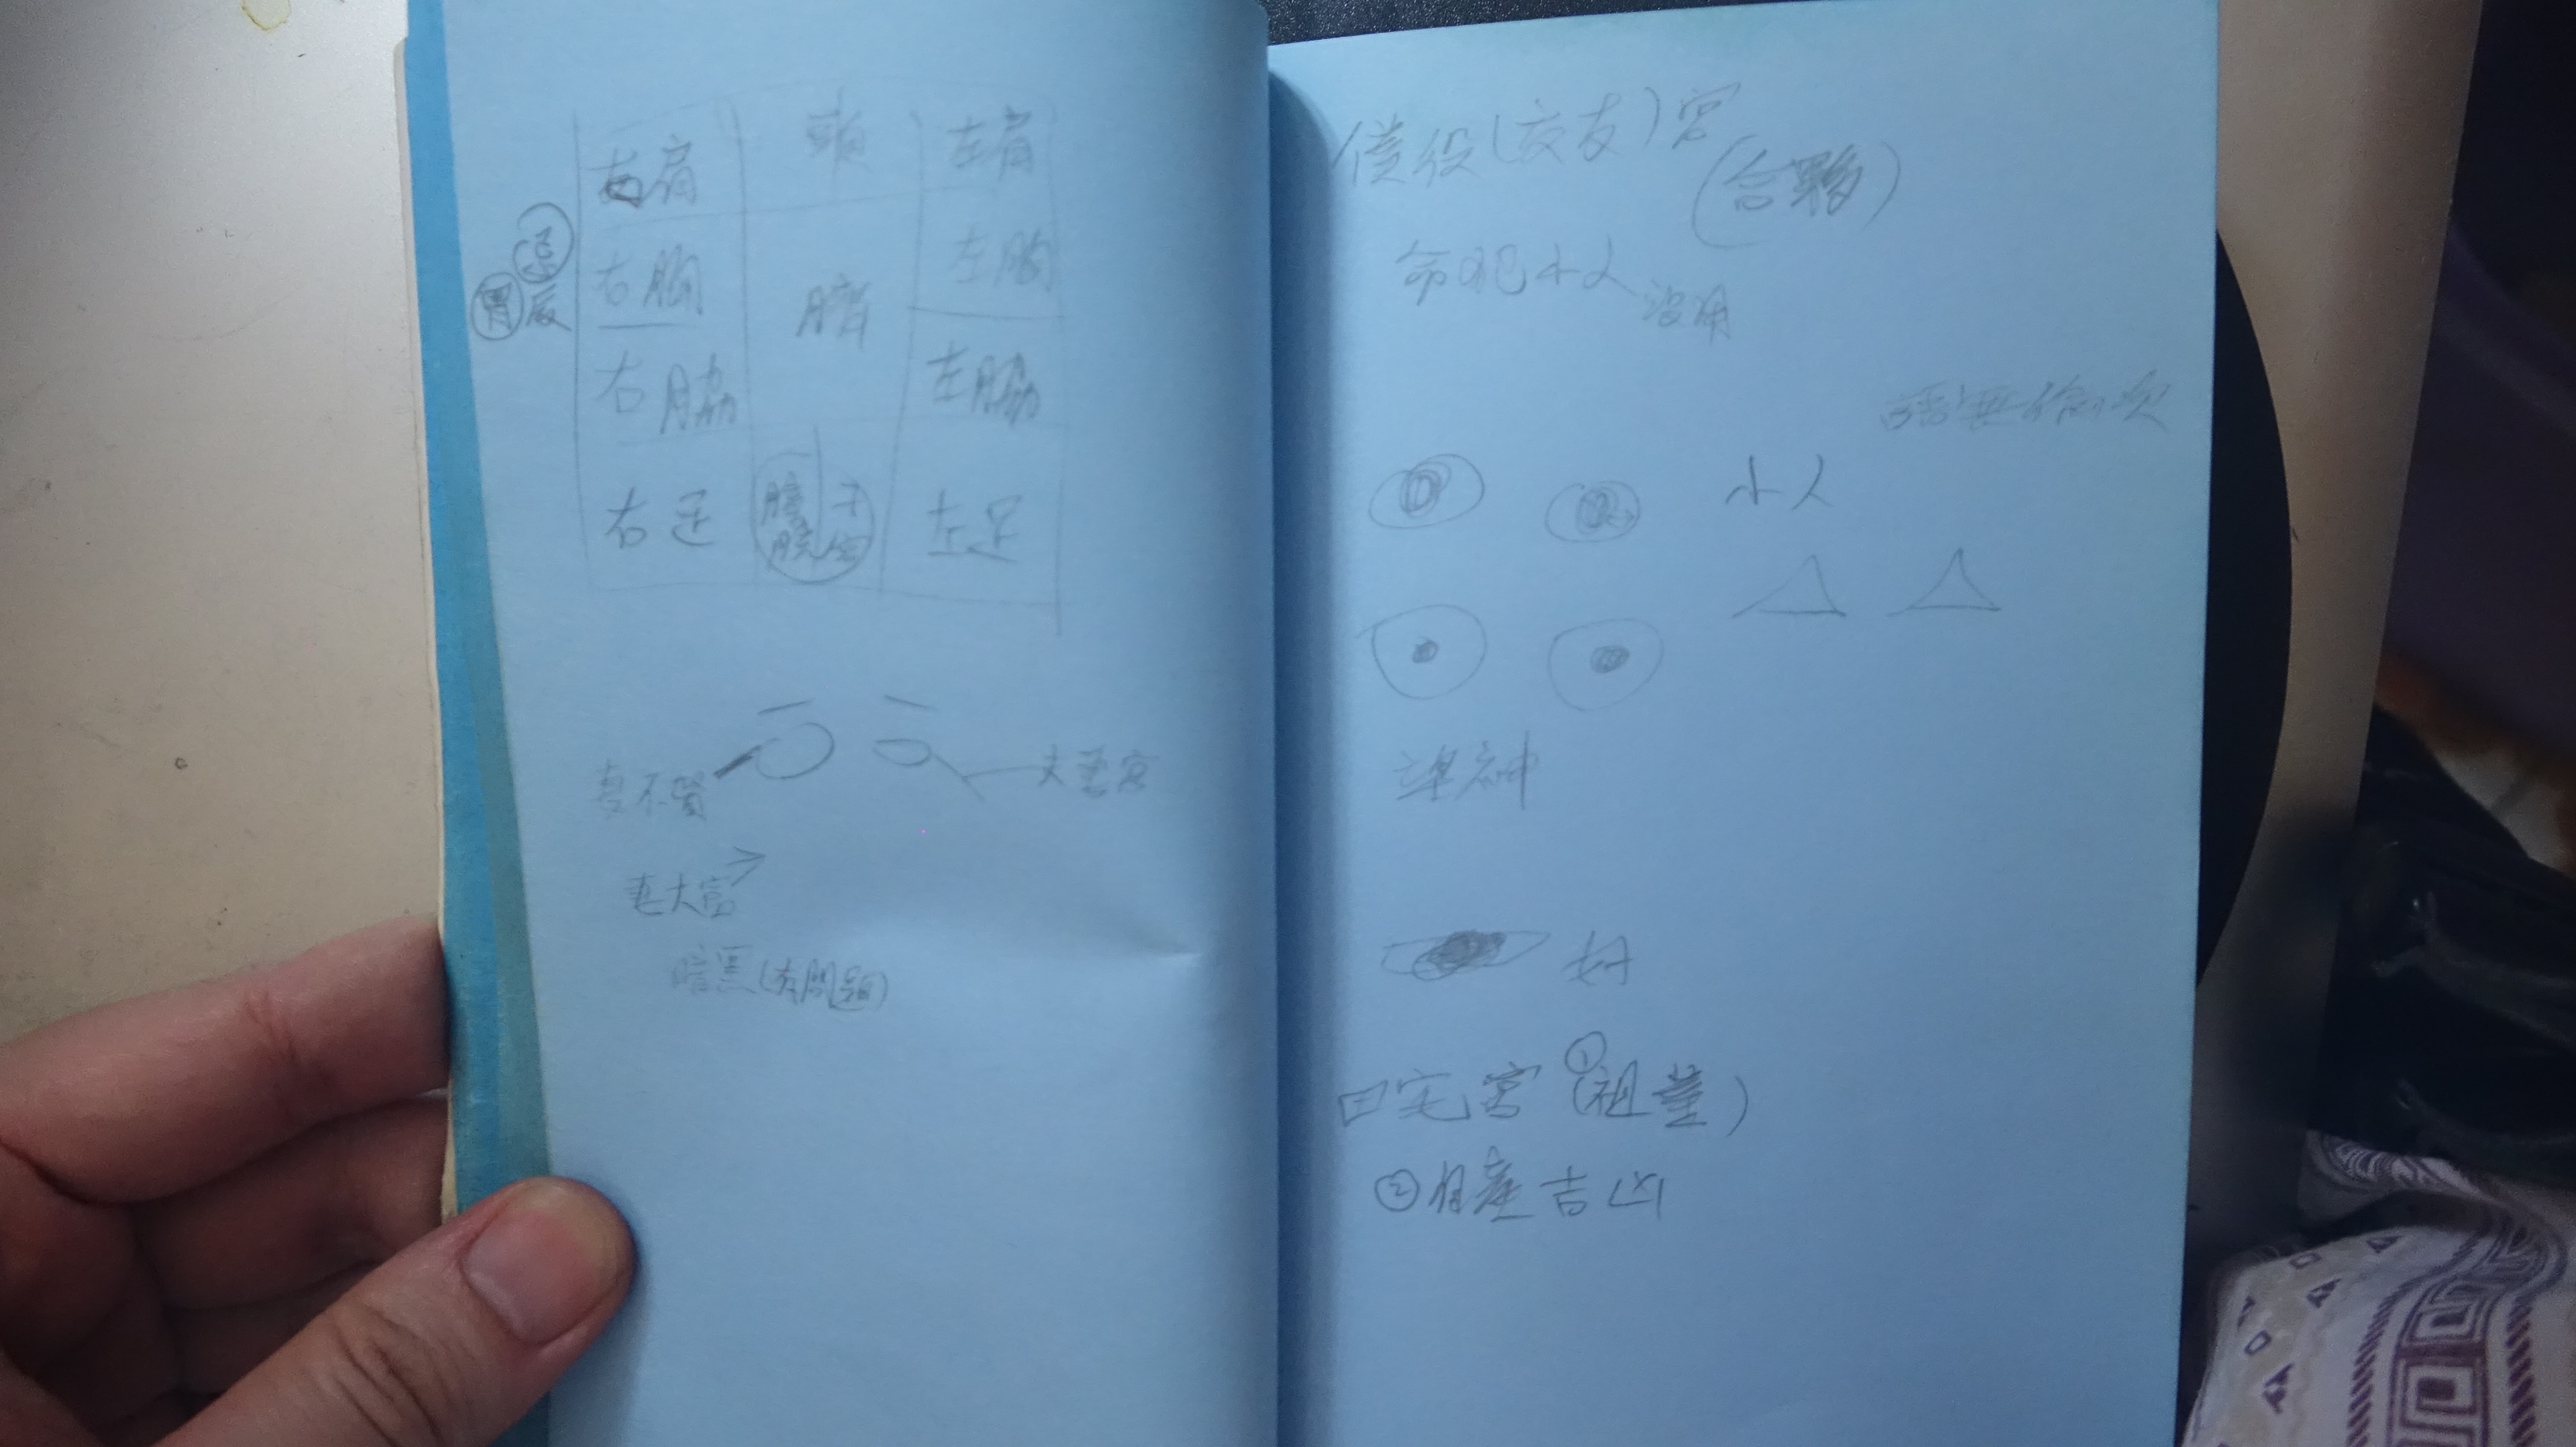 右肩 頭 左肩
忌
胃 辰 右胸 臍 左胸
右脇 左脇
右足 膀胱 子宮 左足
妻不賢 夫妻宮
妻大富
暗黑(有問題)
僕役(交友)宮
(合夥)
命犯小人 盜用
小人
準神
好
田宅宮 ①(祖業)
②有產吉凶